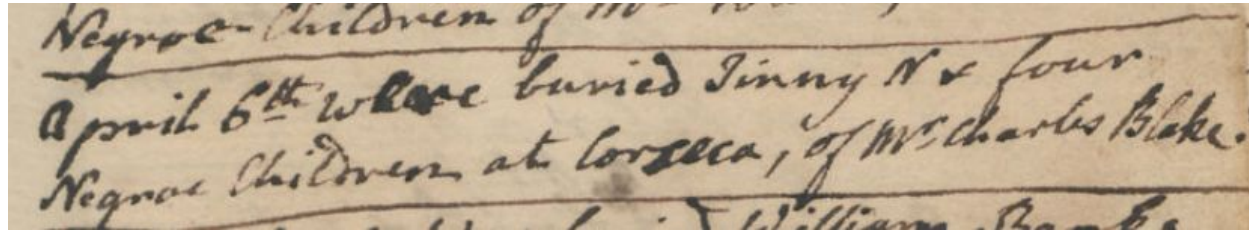 Negroe Children of Mr
April 6th where buried Jinny N & four
Negroe Children at Corseca, of Mr Charles Blake.
William Banks